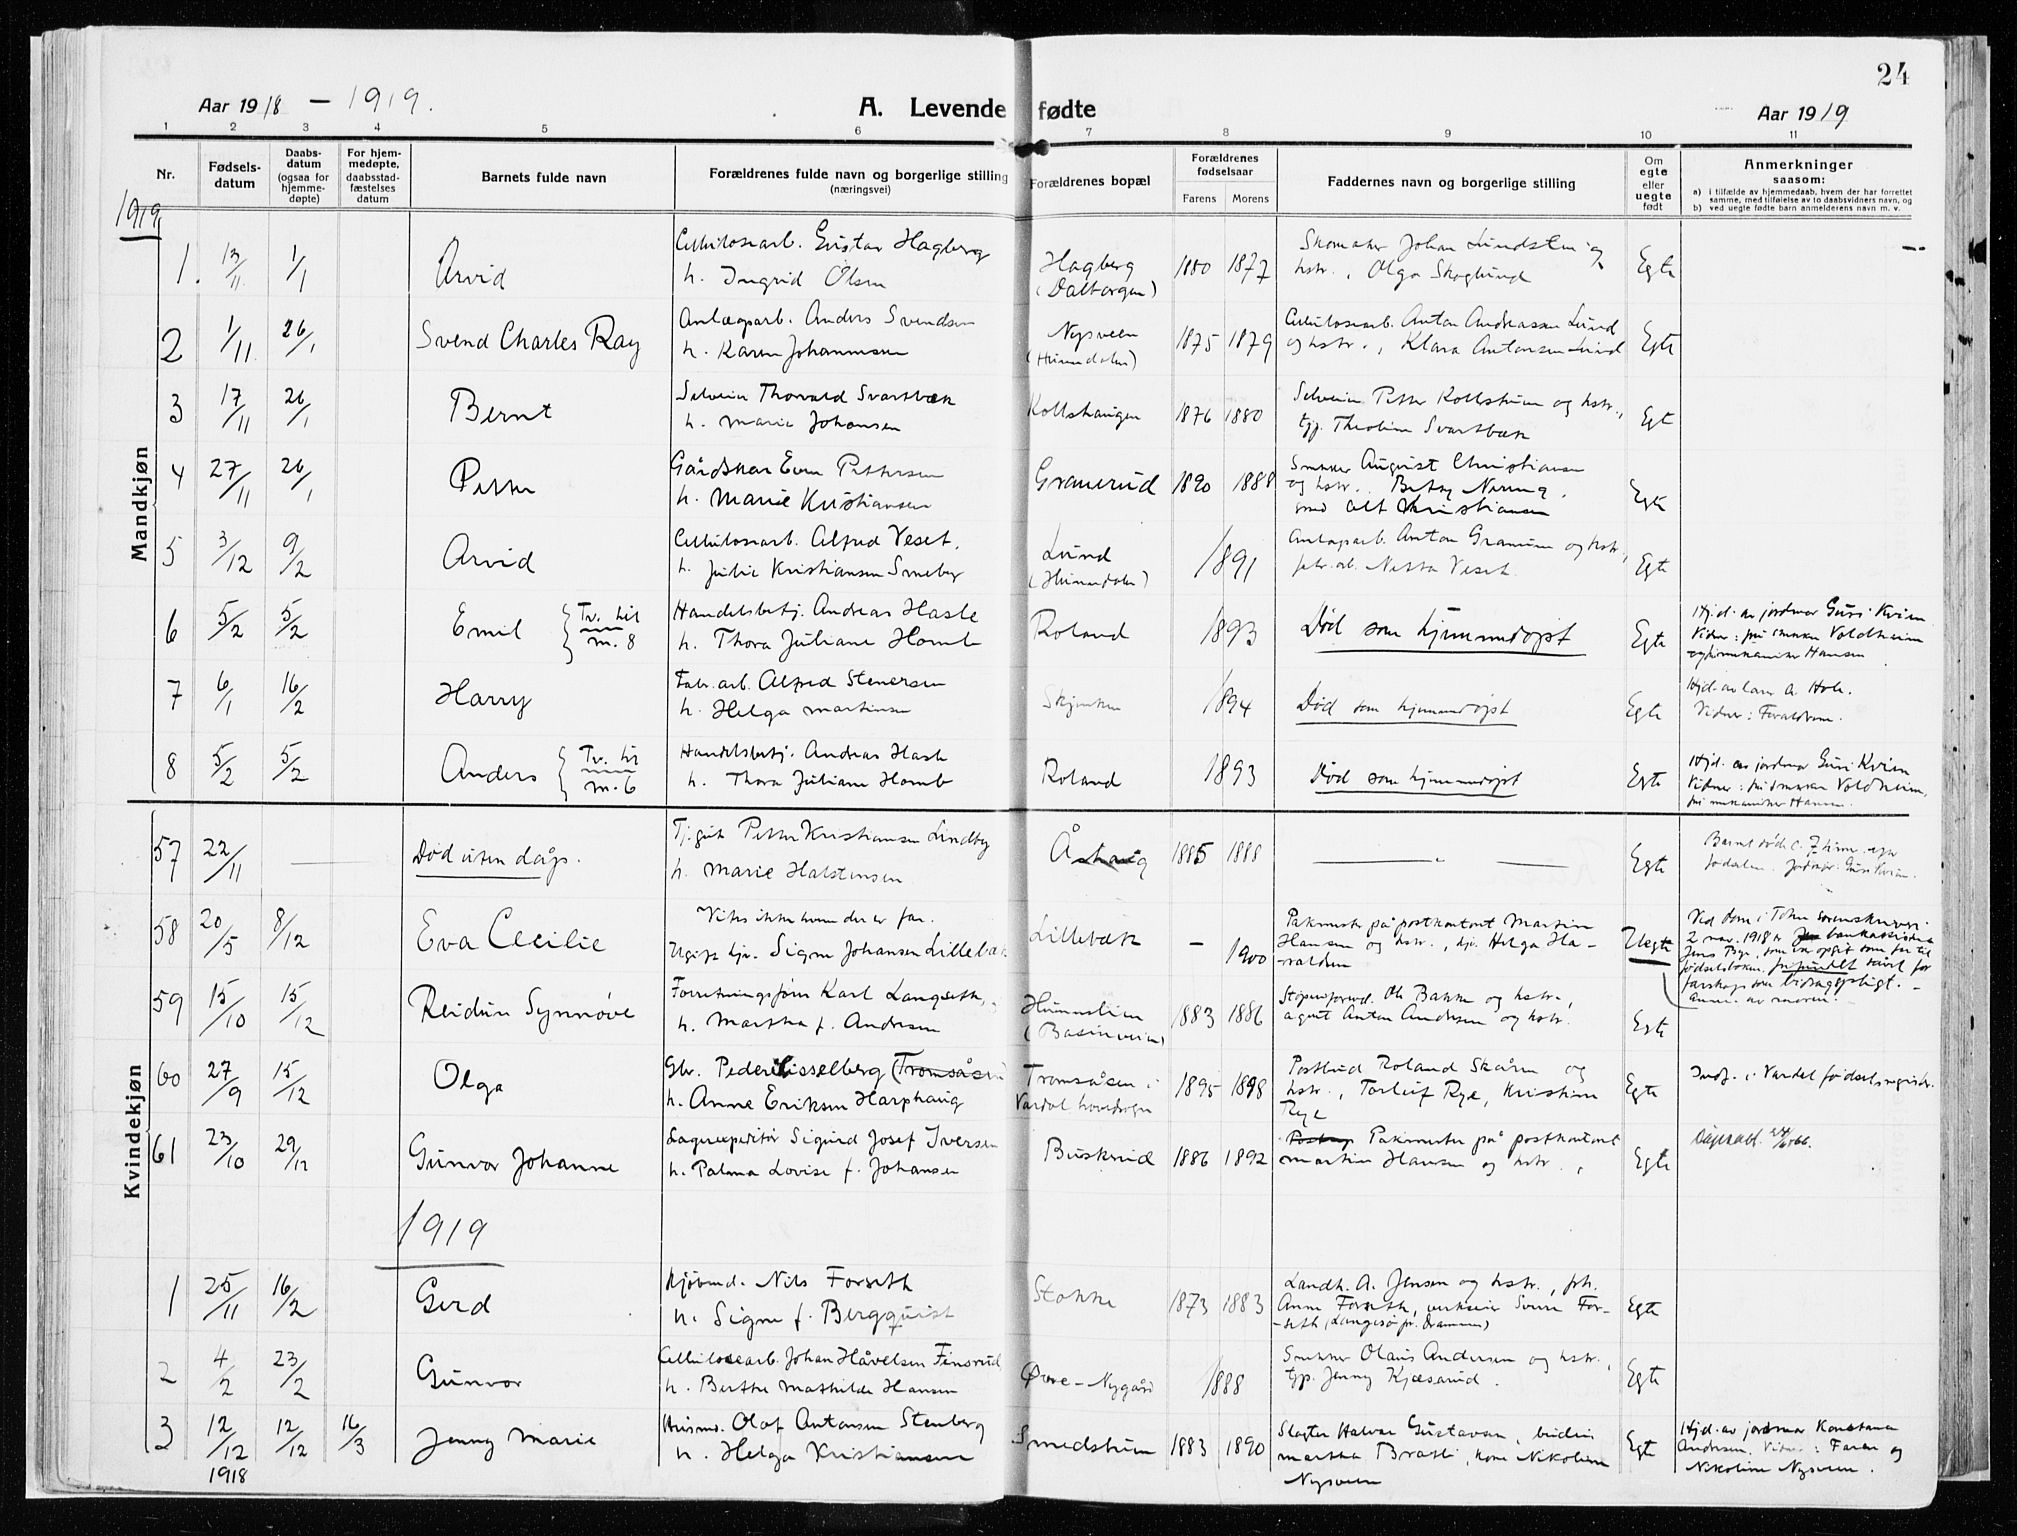 24
Aar 1918 - 1919.
A. Levende fødte
Aar 1919
1 2 3 4 5 6 7 8 9 10 11
Nr.
Fødsels-
datum
Daabs-
datum
(ogsaa for
hjemme-
døpte)
For hjem-
medøpte,
daabsstad-
fæstelses
datum
Barnets fulde navn
Forældrenes fulde navn og borgerlige stilling
(næringsvei)
Forældrenes bopæl
Forældrenes
fødselsaar
Farens Morens
Faddernes navn og borgerlige stilling
Om
egte
eller
uegte
født
Anmerkninger
saasom:
a) i tilfælde av hjemmedaab, hvem der har forrettet
samme, med tilføielse av to daabsvidners navn, og
b) ved uegte fødte barn anmelderens navn m. v.
1919
Mandkjøn
1. 13/11 1/1 Arvid
Cellulosearb. Gustav Hagberg
h. Ingrid Olsen
Hagberg
(Dalborgen)
1880 1877
Skomaker Johan Lundsten og
hstr., Olga Skoglund
Egte
2 1/11 26/1 Svend Charles Ray
Anlægsarb. Anders Svendsen
h. Karen Johannessen
Nysveen
(Hunndalen)
1875 1879
Cellulosearb. Anton Andreassen Lund
og hstr., Klara Antonsen Lund
Egte
3 17/11 26/1 Bernt
Selveier Thorvald Svartbæk
h. Marie Johansen
Kollshaugen
1876 1880
Selveier Petter Kollstuen og hstr.,
tjp. Theoline Svartbæk
Egt
4 27/11 26/1 Petter
Gårdskar Even Pettersen
h. Marie Kristiansen
Granerud
1890 1888
Snekker August Christiansen
og hstr. Betsy Næring,
smed Alf Kristiansen
Egte
5 3/12 9/2 Arvid
Cellulosearb. Alfred Veset,
h. Julie Kristiansen Smeby
Lund
(Hunndalen)
1891
Anlægsarb. Anton Granum og hstr.,
fabr.arb. Netta Veset
Egte
6 5/2 5/2 Emil Tv. til m. 8
Handelsbetj. Andreas Hasle
h. Thora Juliane Homb
Roland
1893
Død som hjemmedøpt
Egte
Hjd. av jordmor Guri Kvien
Vidner: fru snekker Voldheim
og fru mekaniker Hansen
7 6/1 16/2 Harry
Fabr.arb. Alfred Stenersen
h. Helga Martinsen
1894
Død som hjemmedøpt
Egte
Vidner: Forældrene.
8 5/2 5/2 Anders Tv. til m. 6
Handelsbetj. Andreas Hasle
h. Thora Juliane Homb
Roland
1893
Død som hjemmedøpt
Egte
Hjd. av jordmor Guri Kvien
Vidner: fru snekker Voldheim,
fru mekaniker Hansen.
Kvindekjøn
57 22/11 — Død uten dåp.
Tj.gut Petter Kristiansen Lindby
h. Marie Halstensen
Åshaug
1885 1888
— " —
Egte
Barnet døde c. 7 timer efter
fødselen. Jordmor: Guri Kvien.
58 20/5 8/12 Eva Cecilie
Vites ikke hvem der er far.
Ugift tjp. Signe Johansen Lillebæk
Lillebæk
— 1900
Pakmester på postkontoret Martin
Hansen og hstr., tjp. Helga Ha-
raldsen
Uegte
Ved dom i Toten sorenskriveri
2 nov. 1918 er bankassistent
Jens Bye, som var opgit som far til
fødselsboken, frifundet såvel for
farskap som bidragspligt. —
Anm. av moren.
59 15/10 15/12 Reidun Synnøve
Forretningsfører Karl Langseth,
h. Martha f. Andresen
Hunnslien
(Basinveien)
1883 1886
Ole Bakke og hstr.,
agent Anton Andersen og hstr.
Egte
60 27/9 15/12 Olga
Gbr. Peder Gisselberg (Tromsåsen)
h. Anne Eriksen Harphaug
Tromsåsen i
Vardal hovedsogn
1895 1898
Postbud Roland Skåren og
hstr., Torleif Rye, Kristine
Rye
Egte
Indf. i Vardal fødselsregister.
61 23/10 29/12 Gunvor Johanne
Lagerexpeditør Sigurd Josef Iversen
h. Palma Lovise f. Johansen
Buskerud
1886 1892
Pakmester på postkontoret
Martin Hansen og hstr.,
Egte
1919
1 25/11 16/2 Gerd
Kjøbmd. Nils Forseth
h. Signe f. Bergquist
Stokke
1873 1883
Landh. A. Jensen og hstr., frk.
Anne Forseth, verkseier Sverre For-
seth (Langesø pr. Drammen)
Egte
2 4/2 23/2 Gunvor
Cellulosearb. Johan Håvelsen Finsrud
h. Berthe Mathilde Hansen
Øvre-Nygård
1888
Snekker Olaus Andersen og hstr.,
tjp. Jenny Kjæserud.
Egte
3 12/12 1918 12/12 16/3 Jenny Marie
Husmd. Olaf Antonsen Stenberg
h. Helga Kristiansen
Smedstuen
1883 1890
Slagter Halvor Gustavsen, budeie
Martha Bratli, kone Nikoline
Nysveen
Egte
Hjd. av jordmor Konstance
Andersen. Vidner: Faren og
Nikoline Nysveen.